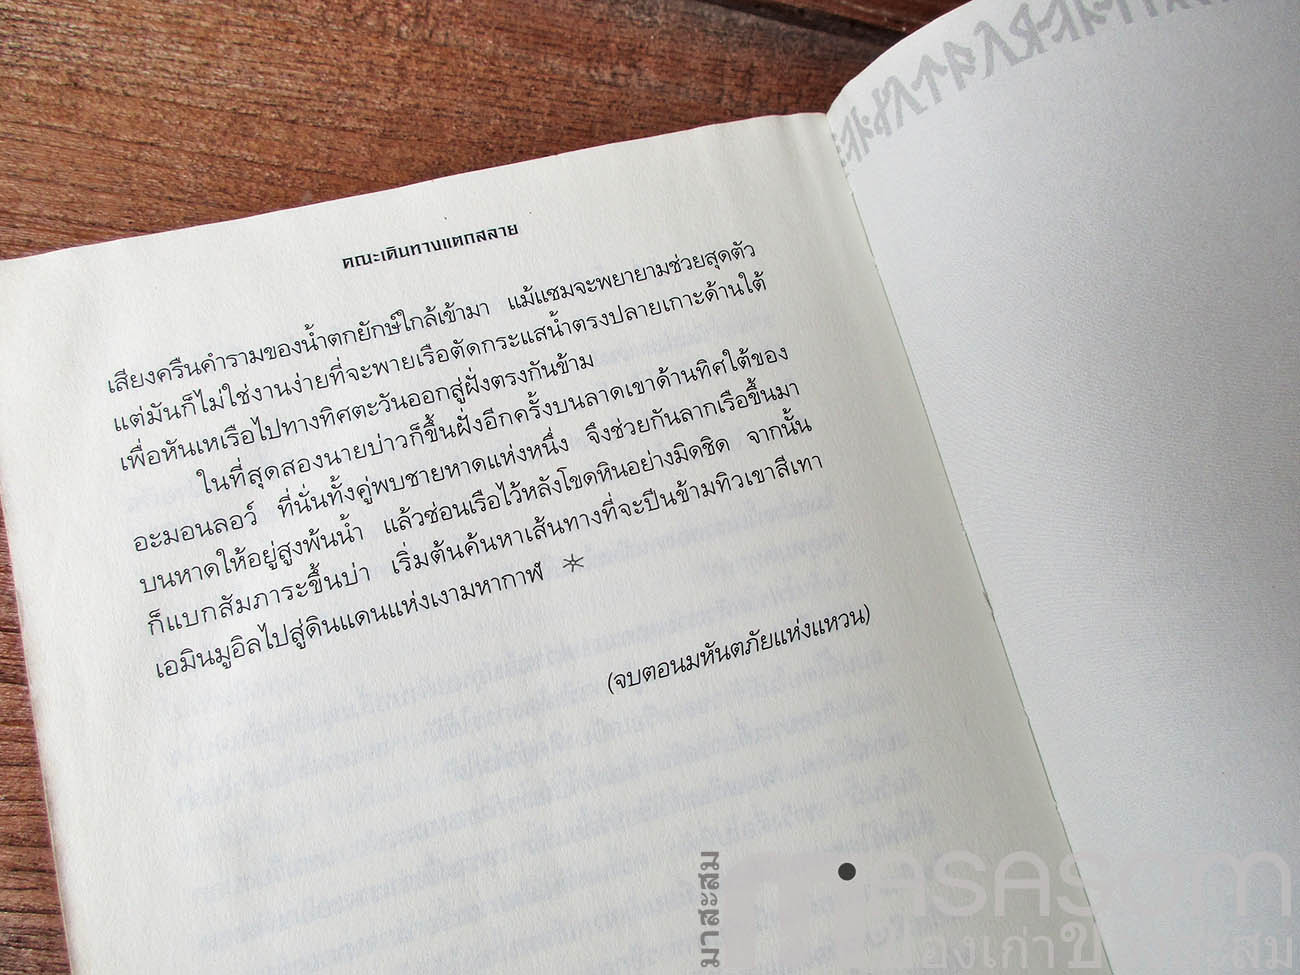 คณะเดินทางแตกสลาย
เสียงครืนคำรามของน้ำตกยักษ์ใกล้เข้ามา แม้แซมจะพยายามช่วยสุดตัว
แต่มันก็ไม่ใช่งานง่ายที่จะพายเรือตัดกระแสน้ำตรงปลายเกาะด้านใต้
เพื่อหันเหเรือไปทางทิศตะวันออกสู่ฝั่งตรงกันข้าม
ในที่สุดสองนายบ่าวก็ขึ้นฝั่งอีกครั้งบนลาดเขาด้านทิศใต้ของ
อะมอนลอว์ ที่นั่นทั้งคู่พบชายหาดแห่งหนึ่ง จึงช่วยกันลากเรือขึ้นมา
บนหาดให้อยู่สูงพ้นน้ำ แล้วซ่อนเรือไว้หลังโขดหินอย่างมิดชิด จากนั้น
ก็แบกสัมภาระขึ้นบ่า เริ่มต้นค้นหาเส้นทางที่จะปีนข้ามทิวเขาสีเทา
เอมินมูอิลไปสู่ดินแดนแห่งเงามหากาฬ
(จบตอนมหันตภัยแห่งแหวน)
มาสะสม
masasam